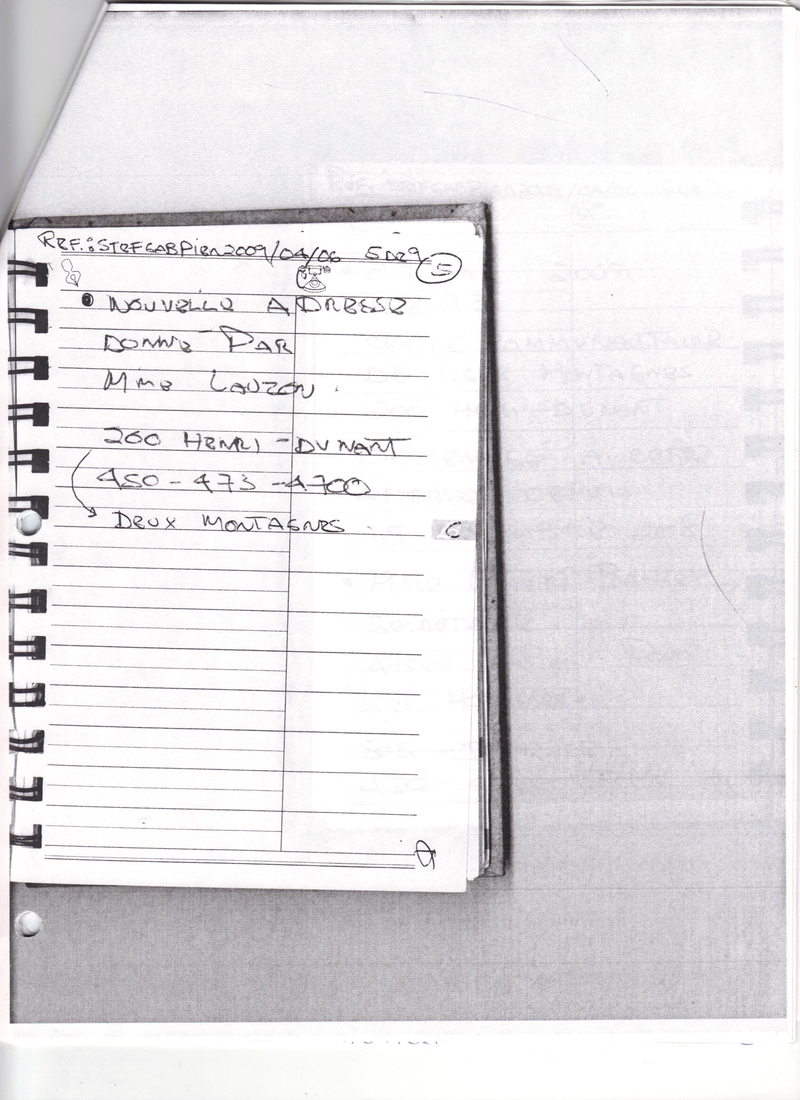 REF.: STEFGABPIER2009/04/06 5 DE 9 5
• NOUVELLE ADRESSE
DONNÉ PAR
Mme LAUZON.
260 HENRI-DUNANT
450-473-4700
DEUX MONTAGNES C